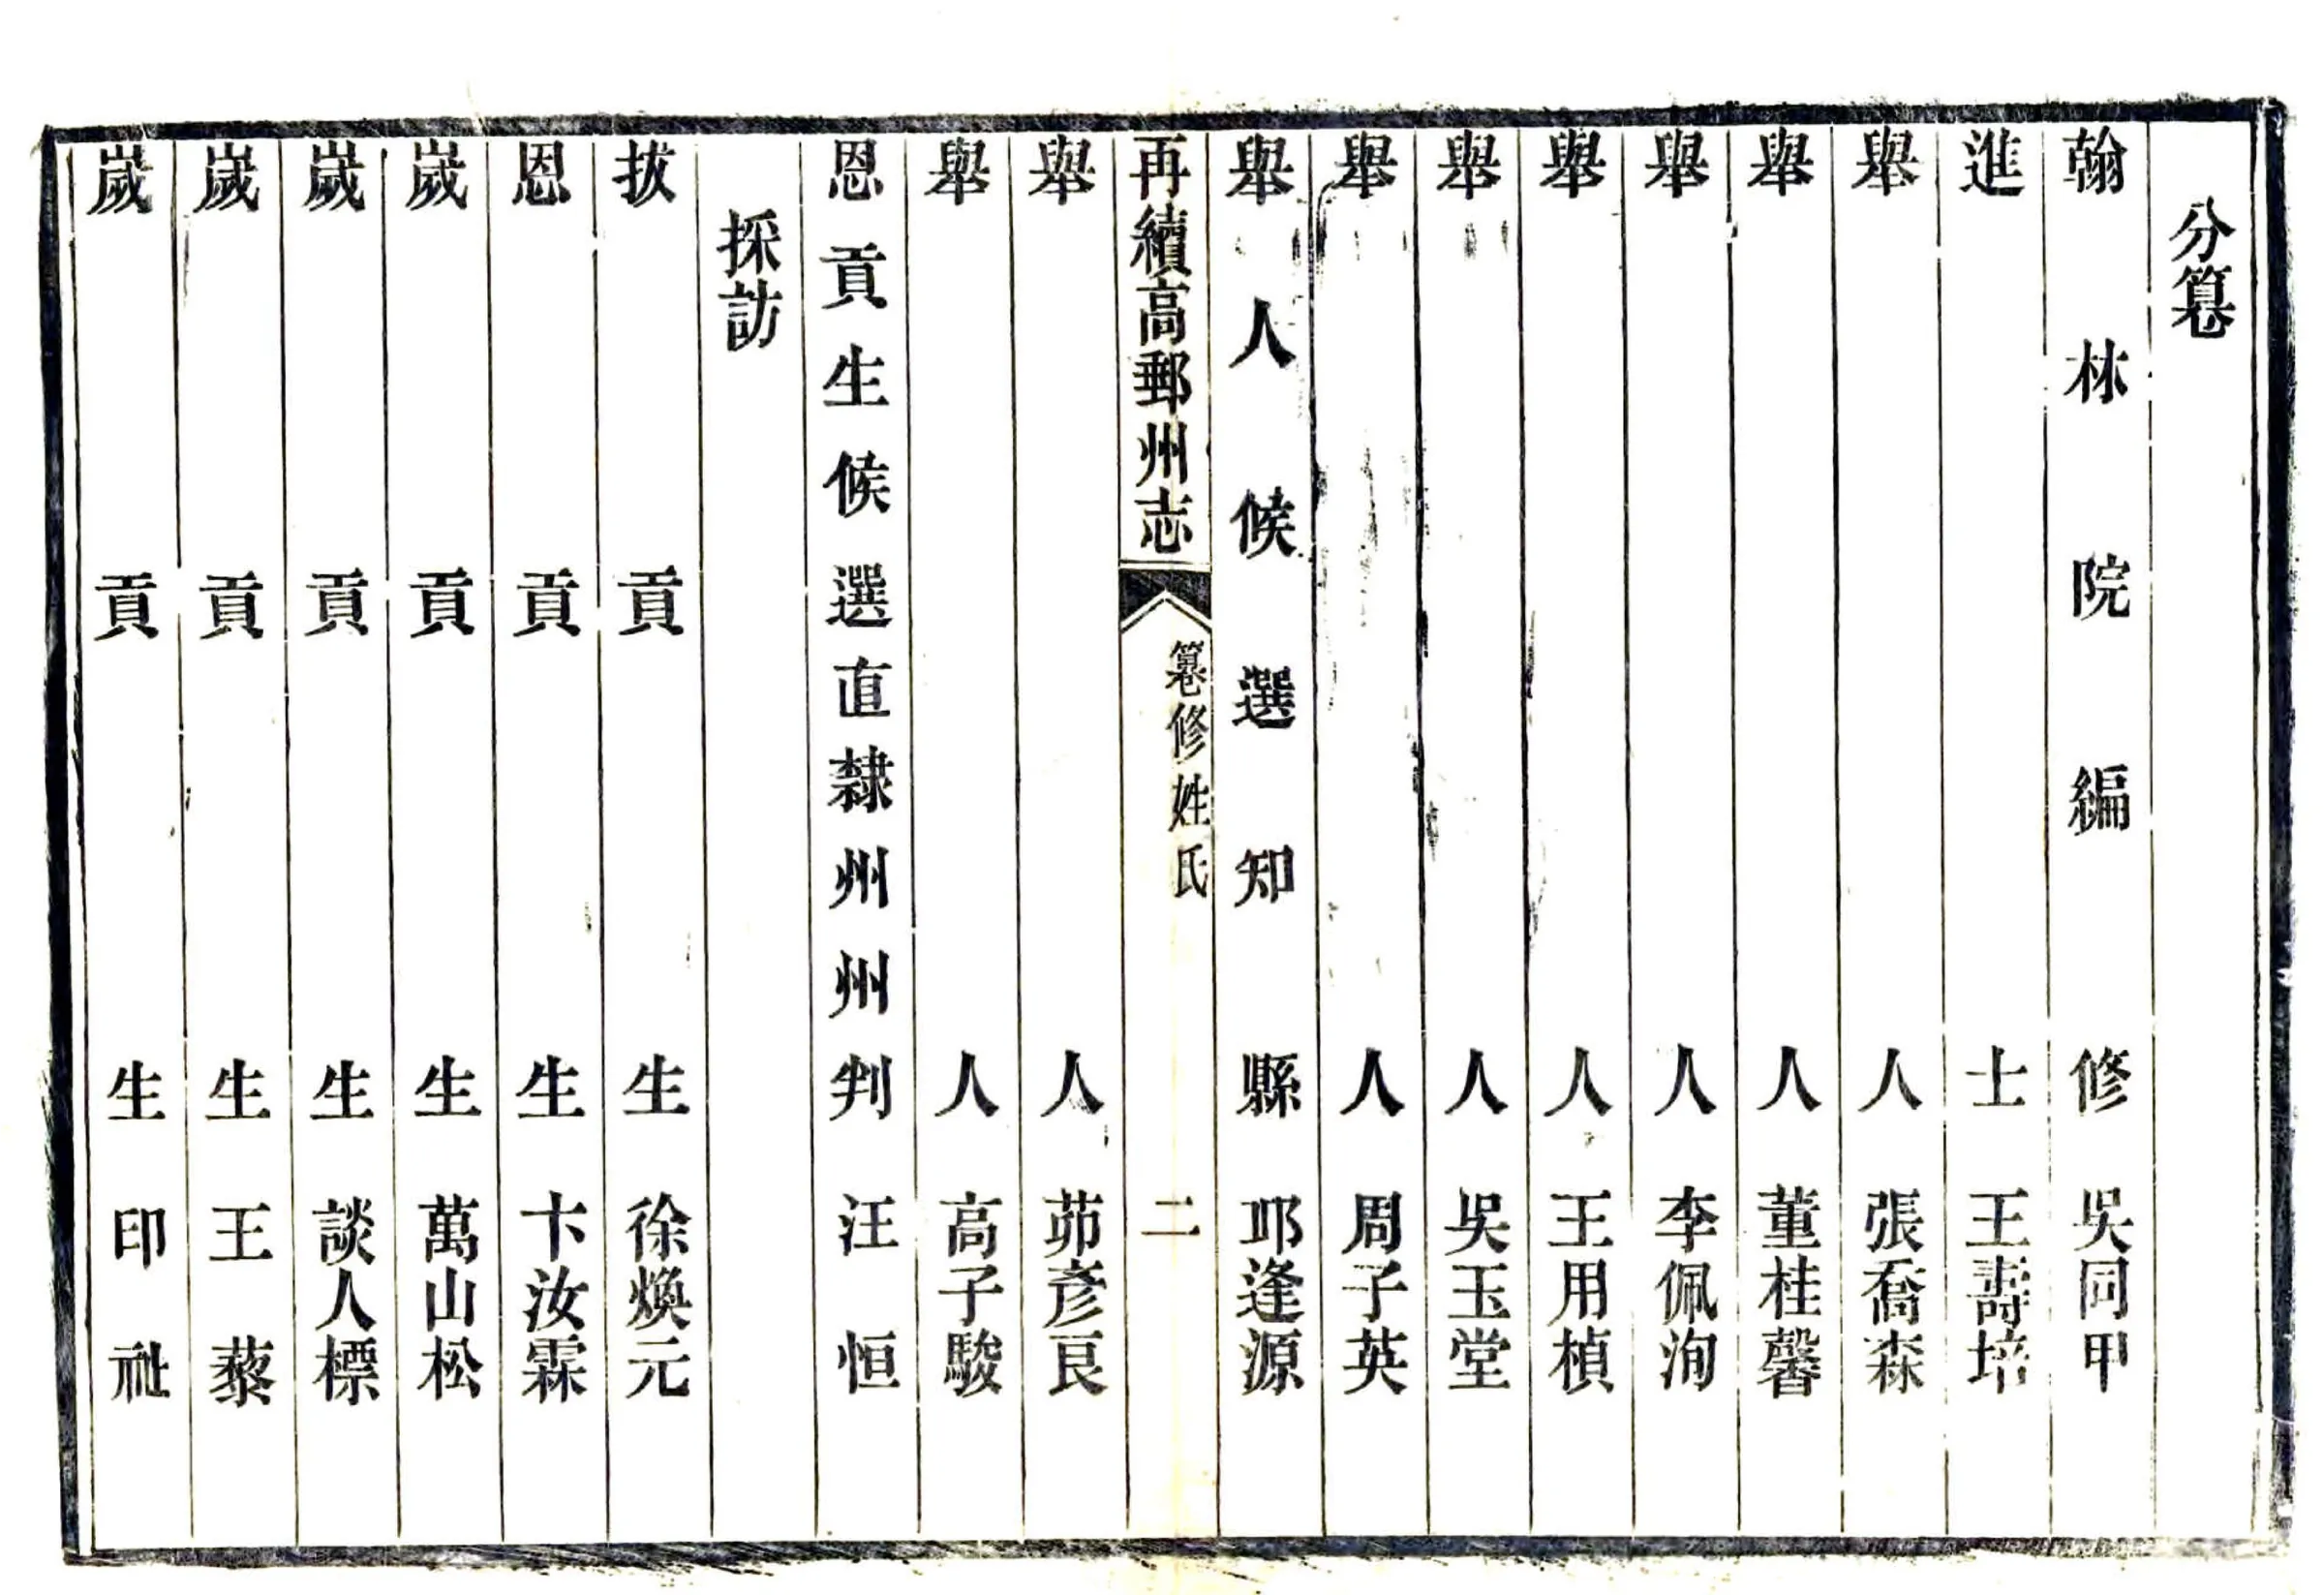 分纂
翰林院編修吳同甲
進士王壽培
舉人張喬森
舉人董桂馨
舉人李佩洵
舉人王用楨
舉人吳玉堂
舉人周子英
舉人候選知縣邛逢源
再續高郵州志 纂修姓氏 二
舉人茆彥艮
舉人高子駿
恩貢生候選直隸州州判汪恒
採訪
拔貢生徐煥元
恩貢生卞汝霖
歲貢生萬山松
歲貢生談人標
歲貢生王藜
歲貢生印祉